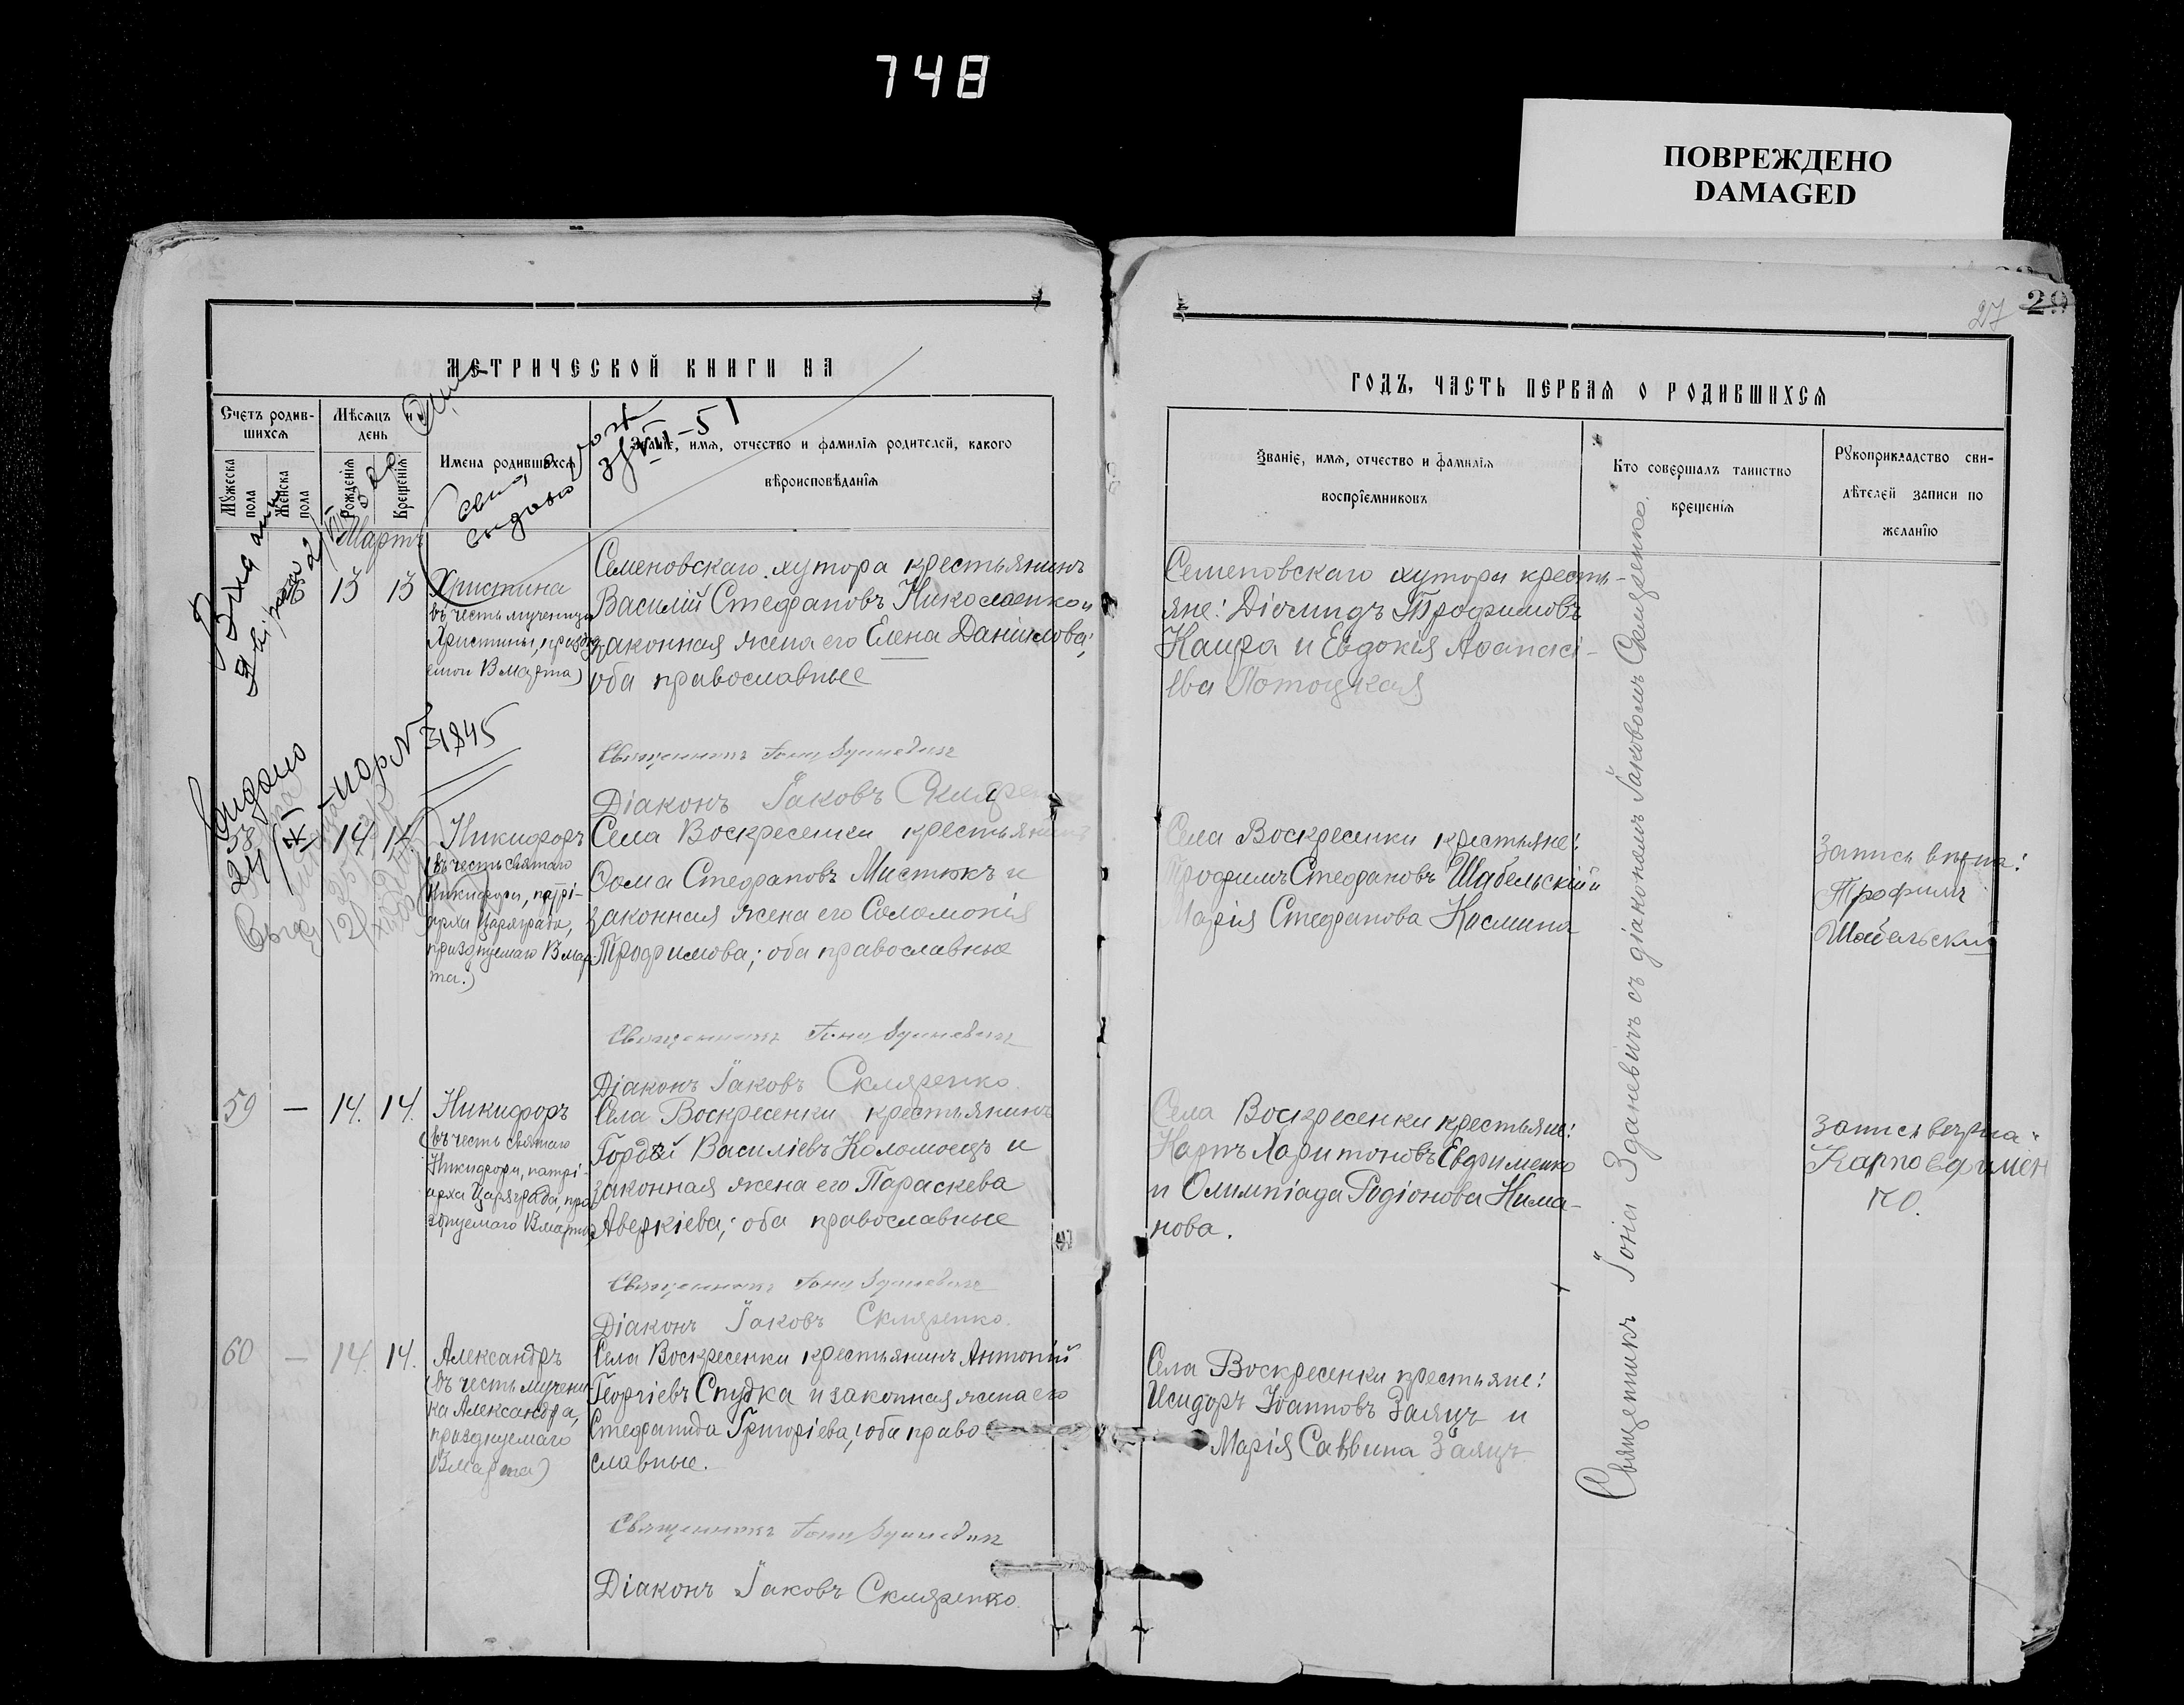 748
ПОВРЕЖДЕНО
DAMAGED
27 29
МЕТРИЧЕСКОЙ КНИГИ НА
Счетъ родив-
шихся
Мѣсяцъ и
день
Мужеска
пола
Женска
пола
Рожденія
Крещенія
Имена родившихся
Званіе, имя, отчество и фамилія родителей, какого
вѣроисповѣданія
-51
Мартъ
13 13 Христина
въ честь мученицы
Христины, праздну
емой 13 марта)
Семеновскаго хутора крестьянинъ
Василій Стефановъ Николаенко и
законная жена его Елена Даніилова;
оба православные
Священникъ Іона Зданевичъ
Діаконъ Іаковъ Скляренко
Выдано
31845
58 14 14 Никифоръ
(въ честь святаго
Никифора, патрі-
арха Царяграда,
празднуемаго 13 мар
та.)
Села Воскресенки крестьянинъ
Ѳома Стефановъ Мистюкъ и
законная жена его Соломонія
Трофимова; оба православные
Священникъ Іона Зданевичъ
Діаконъ Іаковъ Скляренко.
59 — 14. 14. Никифоръ
(въ честь святаго
Никифора, патрі-
арха Царяграда, праз
днуемаго 13 марта)
Села Воскресенки крестьянинъ
Гордѣй Василіевъ Коломоецъ и
законная жена его Параскева
Аверкіева; оба православные
Священникъ Іона Зданевичъ
Діаконъ Іаковъ Скляренко.
60 — 14. 14. Александръ
(въ честь мучени-
ка Александра,
празднуемаго
13 марта)
Села Воскресенки крестьянинъ Антоній
Георгіевъ Спудка и законная жена его
Стефанида Григоріева; оба право
славные.
Священникъ Іона Зданевичъ
Діаконъ Іаковъ Скляренко.
ГОДЪ, ЧАСТЬ ПЕРВАЯ О РОДИВШИХСЯ
Званіе, имя, отчество и фамилія
воспріемниковъ
Кто совершалъ таинство
крещенія
Рукоприкладство сви-
дѣтелей записи по
желанію
Семеновскаго хутора кресть-
яне: Діомидъ Трофимовъ
Каира и Евдокія Аѳанасі-
ева Потоцкая
Села Воскресенки крестьяне:
Трофимъ Стефановъ Шабельскій и
Марія Стефанова
Запись вѣрна:
Трофимъ
Шабельский
Села Воскресенки крестьяне:
Карпъ Харитоновъ Евфименко
и Олимпіада Родіонова Нима-
нова.
Запись вѣрна:
Карпо Ефимен
ко.
Села Воскресенки крестьяне:
Исидоръ Іоанновъ Заяцъ и
Марія Саввина Заяцъ
Священникъ Іона Зданевичъ съ діакономъ Іаковомъ Скляренко.